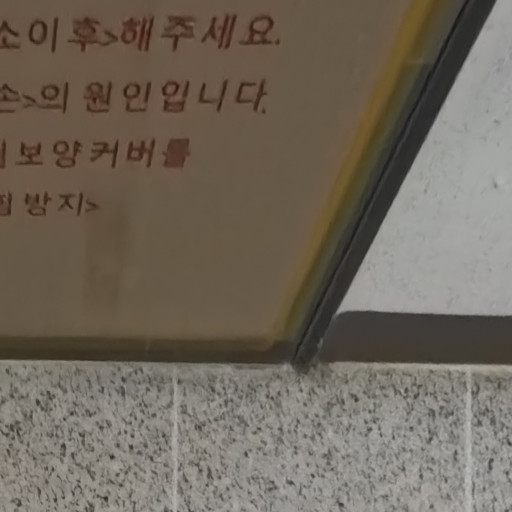 소이후>해주세요.
손>의 원인입니다.
보양커버를
방지>